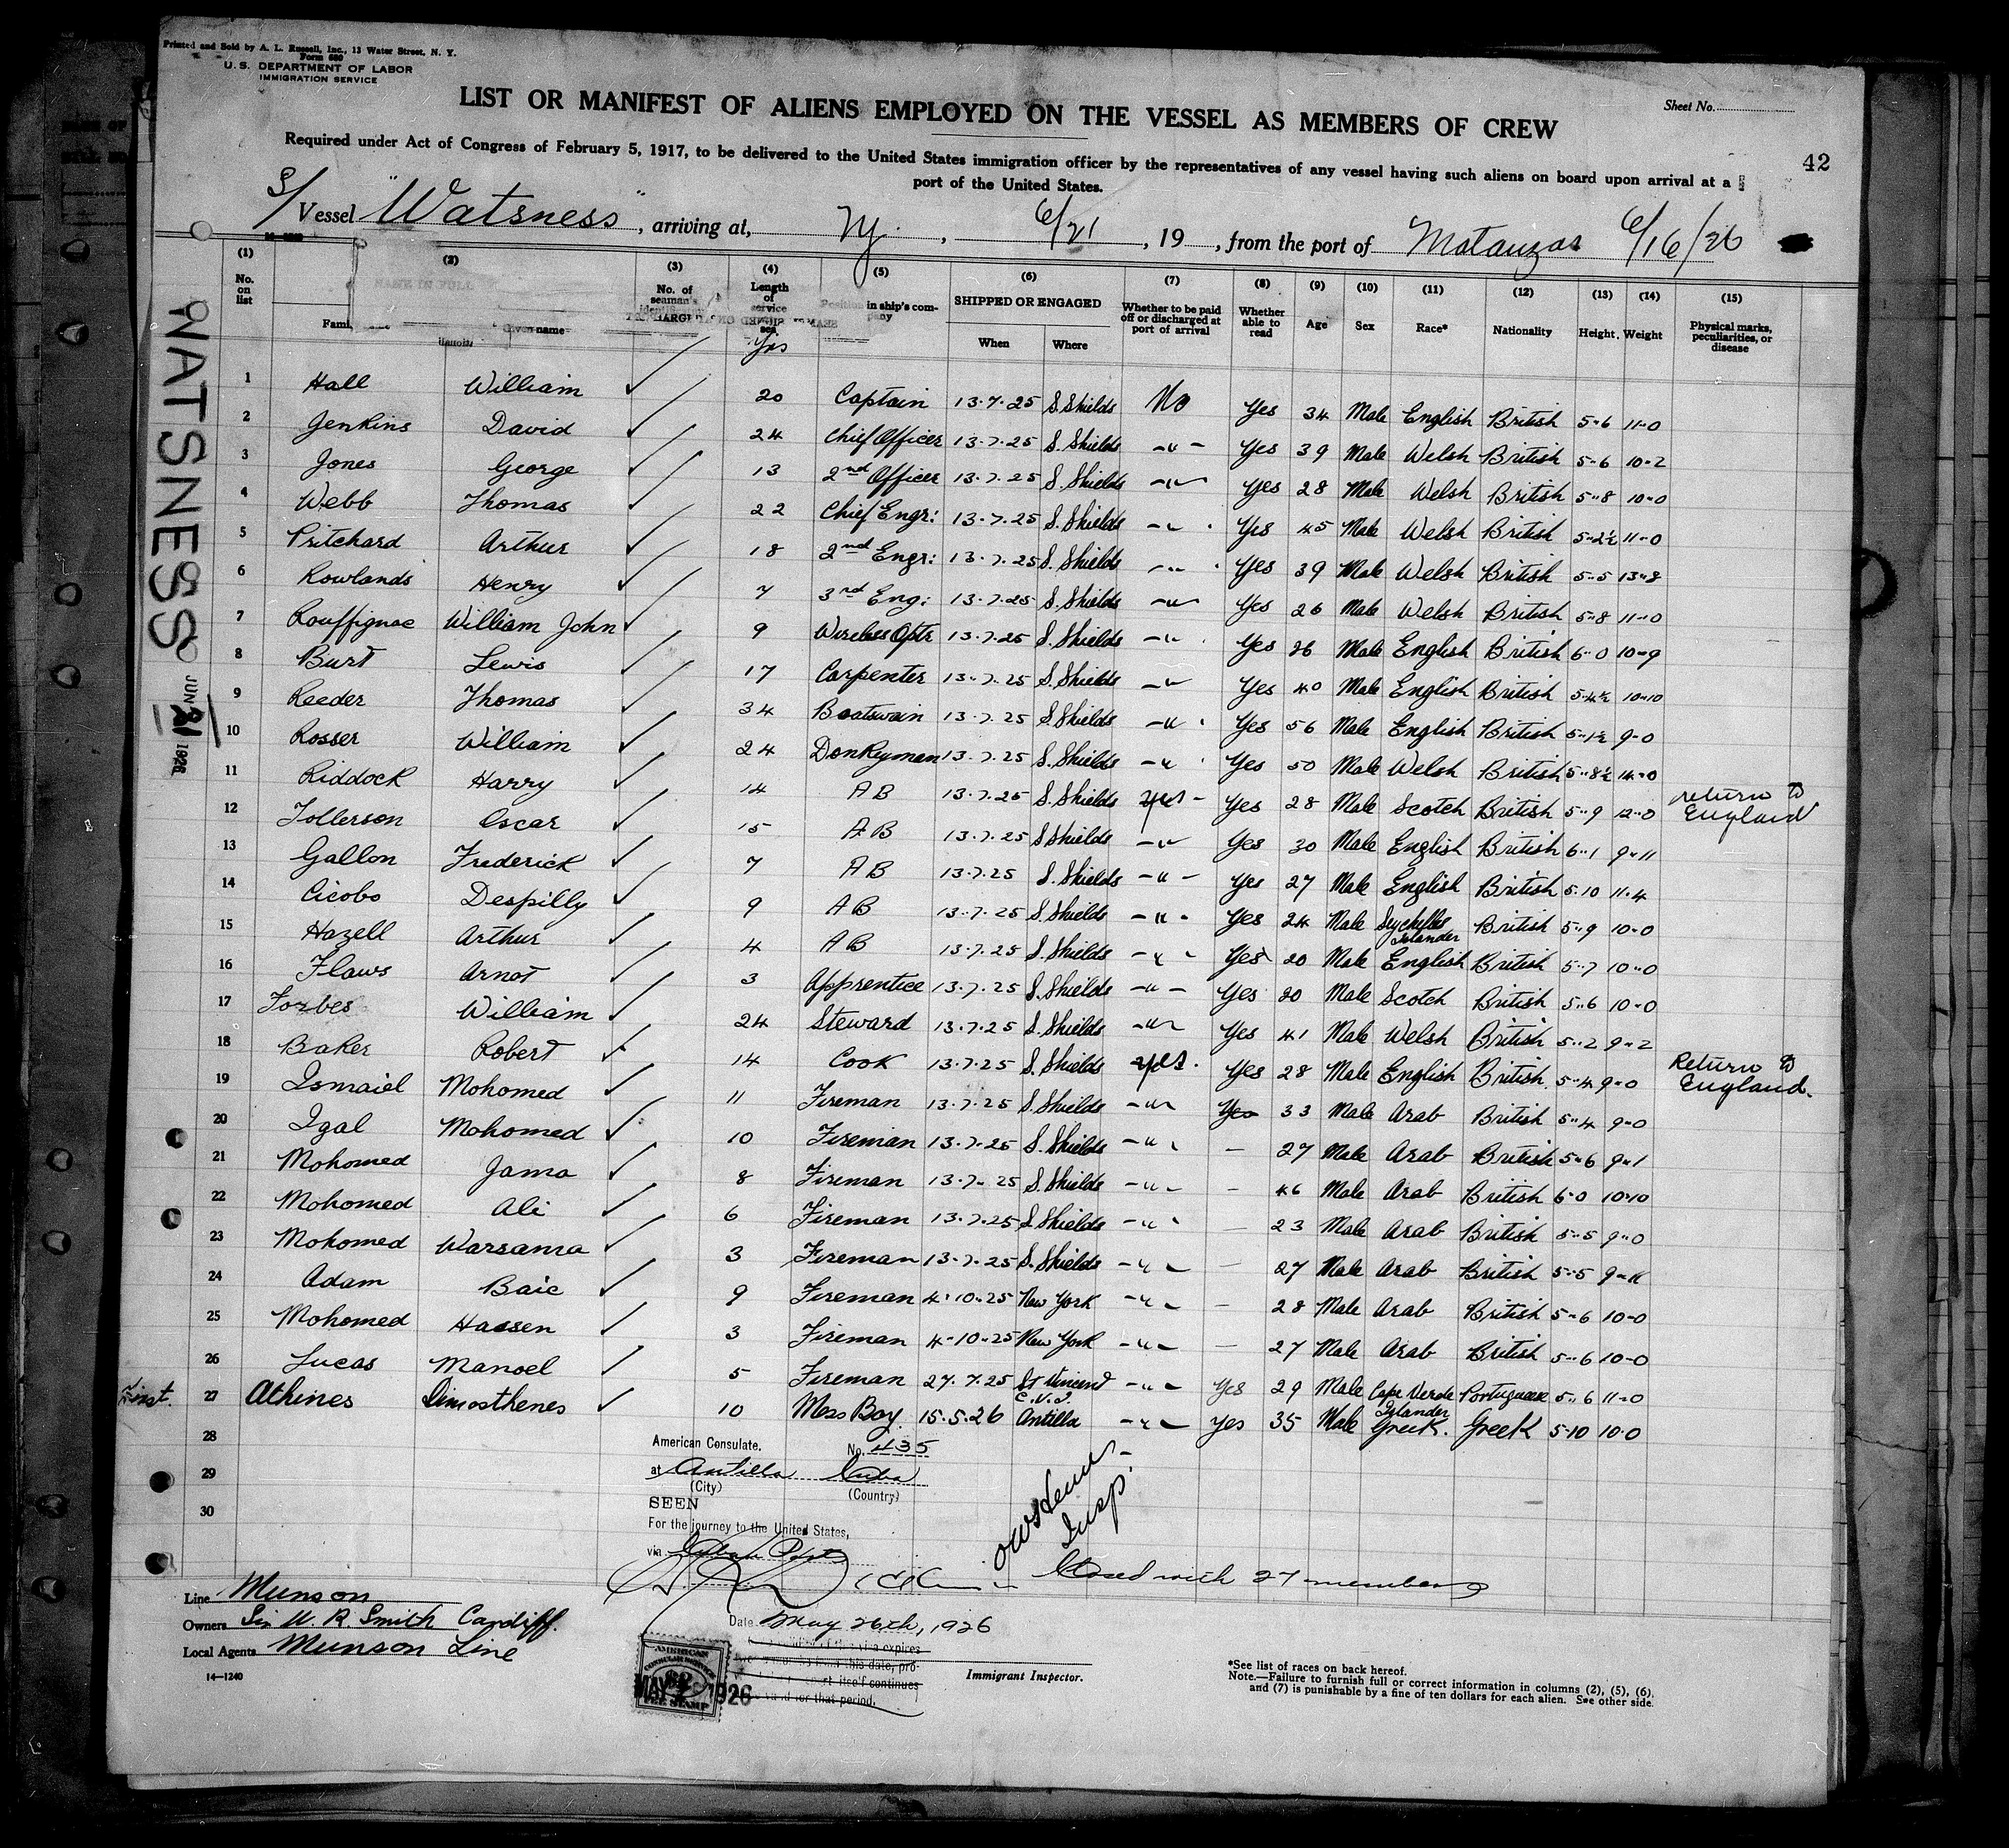 Printed and Sold by A. L. Russell, Inc., 13 Water Street, N. Y.
Form 680
U. S. DEPARTMENT OF LABOR
IMMIGRATION SERVICE
Sheet No.
LIST OR MANIFEST OF ALIENS EMPLOYED ON THE VESSEL AS MEMBERS OF CREW
42
Required under Act of Congress of February 5, 1917, to be delivered to the United States immigration officer by the representatives of any vessel having such aliens on board upon arrival at a
port of the United States.
S/ Vessel "Watsness", arriving at, NY., 6/21, 19 , from the port of Matanzas 6/16/26
(1) (2) (3) (4) (5) (6) (7) (8) (9) (10) (11) (12) (13) (14) (15)
No. on list NAME IN FULL Given name No. of seaman's Length of service Position in ship's company SHIPPED OR ENGAGED When Where Whether to be paid off or discharged at port of arrival Whether able to read Age Sex Race* Nationality Height. Weight Physical marks, peculiarities, or disease
Yrs
1 Hall William 20 Captain 13.7.25 S. Shields No Yes 34 Male English British 5"6 11-0
2 Jenkins David 24 Chief Officer 13.7.25 S. Shields -"- Yes 39 Male Welsh British 5-6 10-2
3 Jones George 13 2nd Officer 13.7.25 S. Shields -"- Yes 28 Male Welsh British 5"8 10-0
4 Webb Thomas 22 Chief Engr: 13.7.25 S. Shields -"- Yes 45 Male Welsh British 5-2½ 11-0
5 Pritchard Arthur 18 2nd Engr: 13.7.25 S. Shields -"- Yes 39 Male Welsh British 5"5 13"8
6 Rowlands Henry 7 3rd Eng: 13.7.25 S. Shields -"- Yes 26 Male Welsh British 5"8 11-0
7 Rouffignac William John 9 Wireless Optr 13.7.25 S. Shields -"- Yes 26 Male English British 6"0 10"9
8 Burt Lewis 17 Carpenter 13.7.25 S. Shields -"- Yes 40 Male English British 5-4½ 10-10
9 Reeder Thomas 34 Boatswain 13.7.25 S. Shields -"- Yes 56 Male English British 5"1½ 9-0
10 Rosser William 24 Donkeyman 13.7.25 S. Shields -"- Yes 50 Male Welsh British 5"8½ 14-0
11 Riddock Harry 14 AB 13.7.25 S. Shields yes - Yes 28 Male Scotch British 5"9 12-0 return to England
12 Tollerson Oscar 15 AB 13.7.25 S Shields -"- Yes 30 Male English British 6"1 9"11
13 Gallon Frederick 7 AB 13.7.25 S. Shields -"- Yes 27 Male English British 5.10 11.4
14 Cicobo Despilly 9 AB 13.7.25 S. Shields -"- Yes 24 Male Seychelles Islander British 5"9 10-0
15 Hazell Arthur 4 AB 13.7.25 S. Shields -"- Yes 20 Male English British 5"7 10"0
16 Flaws Arnot 3 Apprentice 13.7.25 S. Shields -"- Yes 20 Male Scotch British 5"6 10-0
17 Forbes William 24 Steward 13.7.25 S. Shields -"- Yes 41 Male Welsh British 5"2 9"2
18 Baker Robert 14 Cook 13.7.25 S. Shields yes. Yes 28 Male English British 5"4 9"0 Return to England.
19 Ismaiel Mohomed 11 Fireman 13.7.25 S. Shields -"- Yes 33 Male Arab British 5"4 9"0
20 Igal Mohomed 10 Fireman 13.7.25 S. Shields -"- - 27 Male Arab British 5"6 9"1
21 Mohomed Jama 8 Fireman 13.7.25 S. Shields -"- - 46 Male Arab British 6-0 10-10
22 Mohomed Ali 6 Fireman 13.7.25 S. Shields -"- - 23 Male Arab British 5"5 9"0
23 Mohomed Warsama 3 Fireman 13.7.25 S. Shields -"- - 27 Male Arab British 5"5
24 Adam Baic 9 Fireman 4.10.25 New York -"- - 28 Male Arab British 5"6 10-0
25 Mohomed Hassen 3 Fireman 4-10-25 New York -"- - 27 Male Arab British 5"6 10-0
26 Lucas Manoel 5 Fireman 27.7.25 St Vincent C.V.I. -"- Yes 29 Male Cape Verde Islander Portuguese 5"6 11-0
27 Athines Dimosthenes 10 Mess Boy 15.5.26 Antilla -"- Yes 35 Male Greek. Greek 5-10 10-0
28
29
30
WATSNESS
JUN 21 1926
American Consulate. No. 435
at Antilla Cuba
(City) (Country)
SEEN
For the journey to the United States,
via
Insp.
Closed with 27 members
Date May 26th, 1926
Line Munson
Owners Sir W. R. Smith Cardiff.
Local Agents Munson Line
14—1240
AMERICAN CONSULAR SERVICE
FEE STAMP
MAY 1926
Immigrant Inspector.
*See list of races on back hereof.
Note.—Failure to furnish full or correct information in columns (2), (5), (6),
and (7) is punishable by a fine of ten dollars for each alien. See other side.